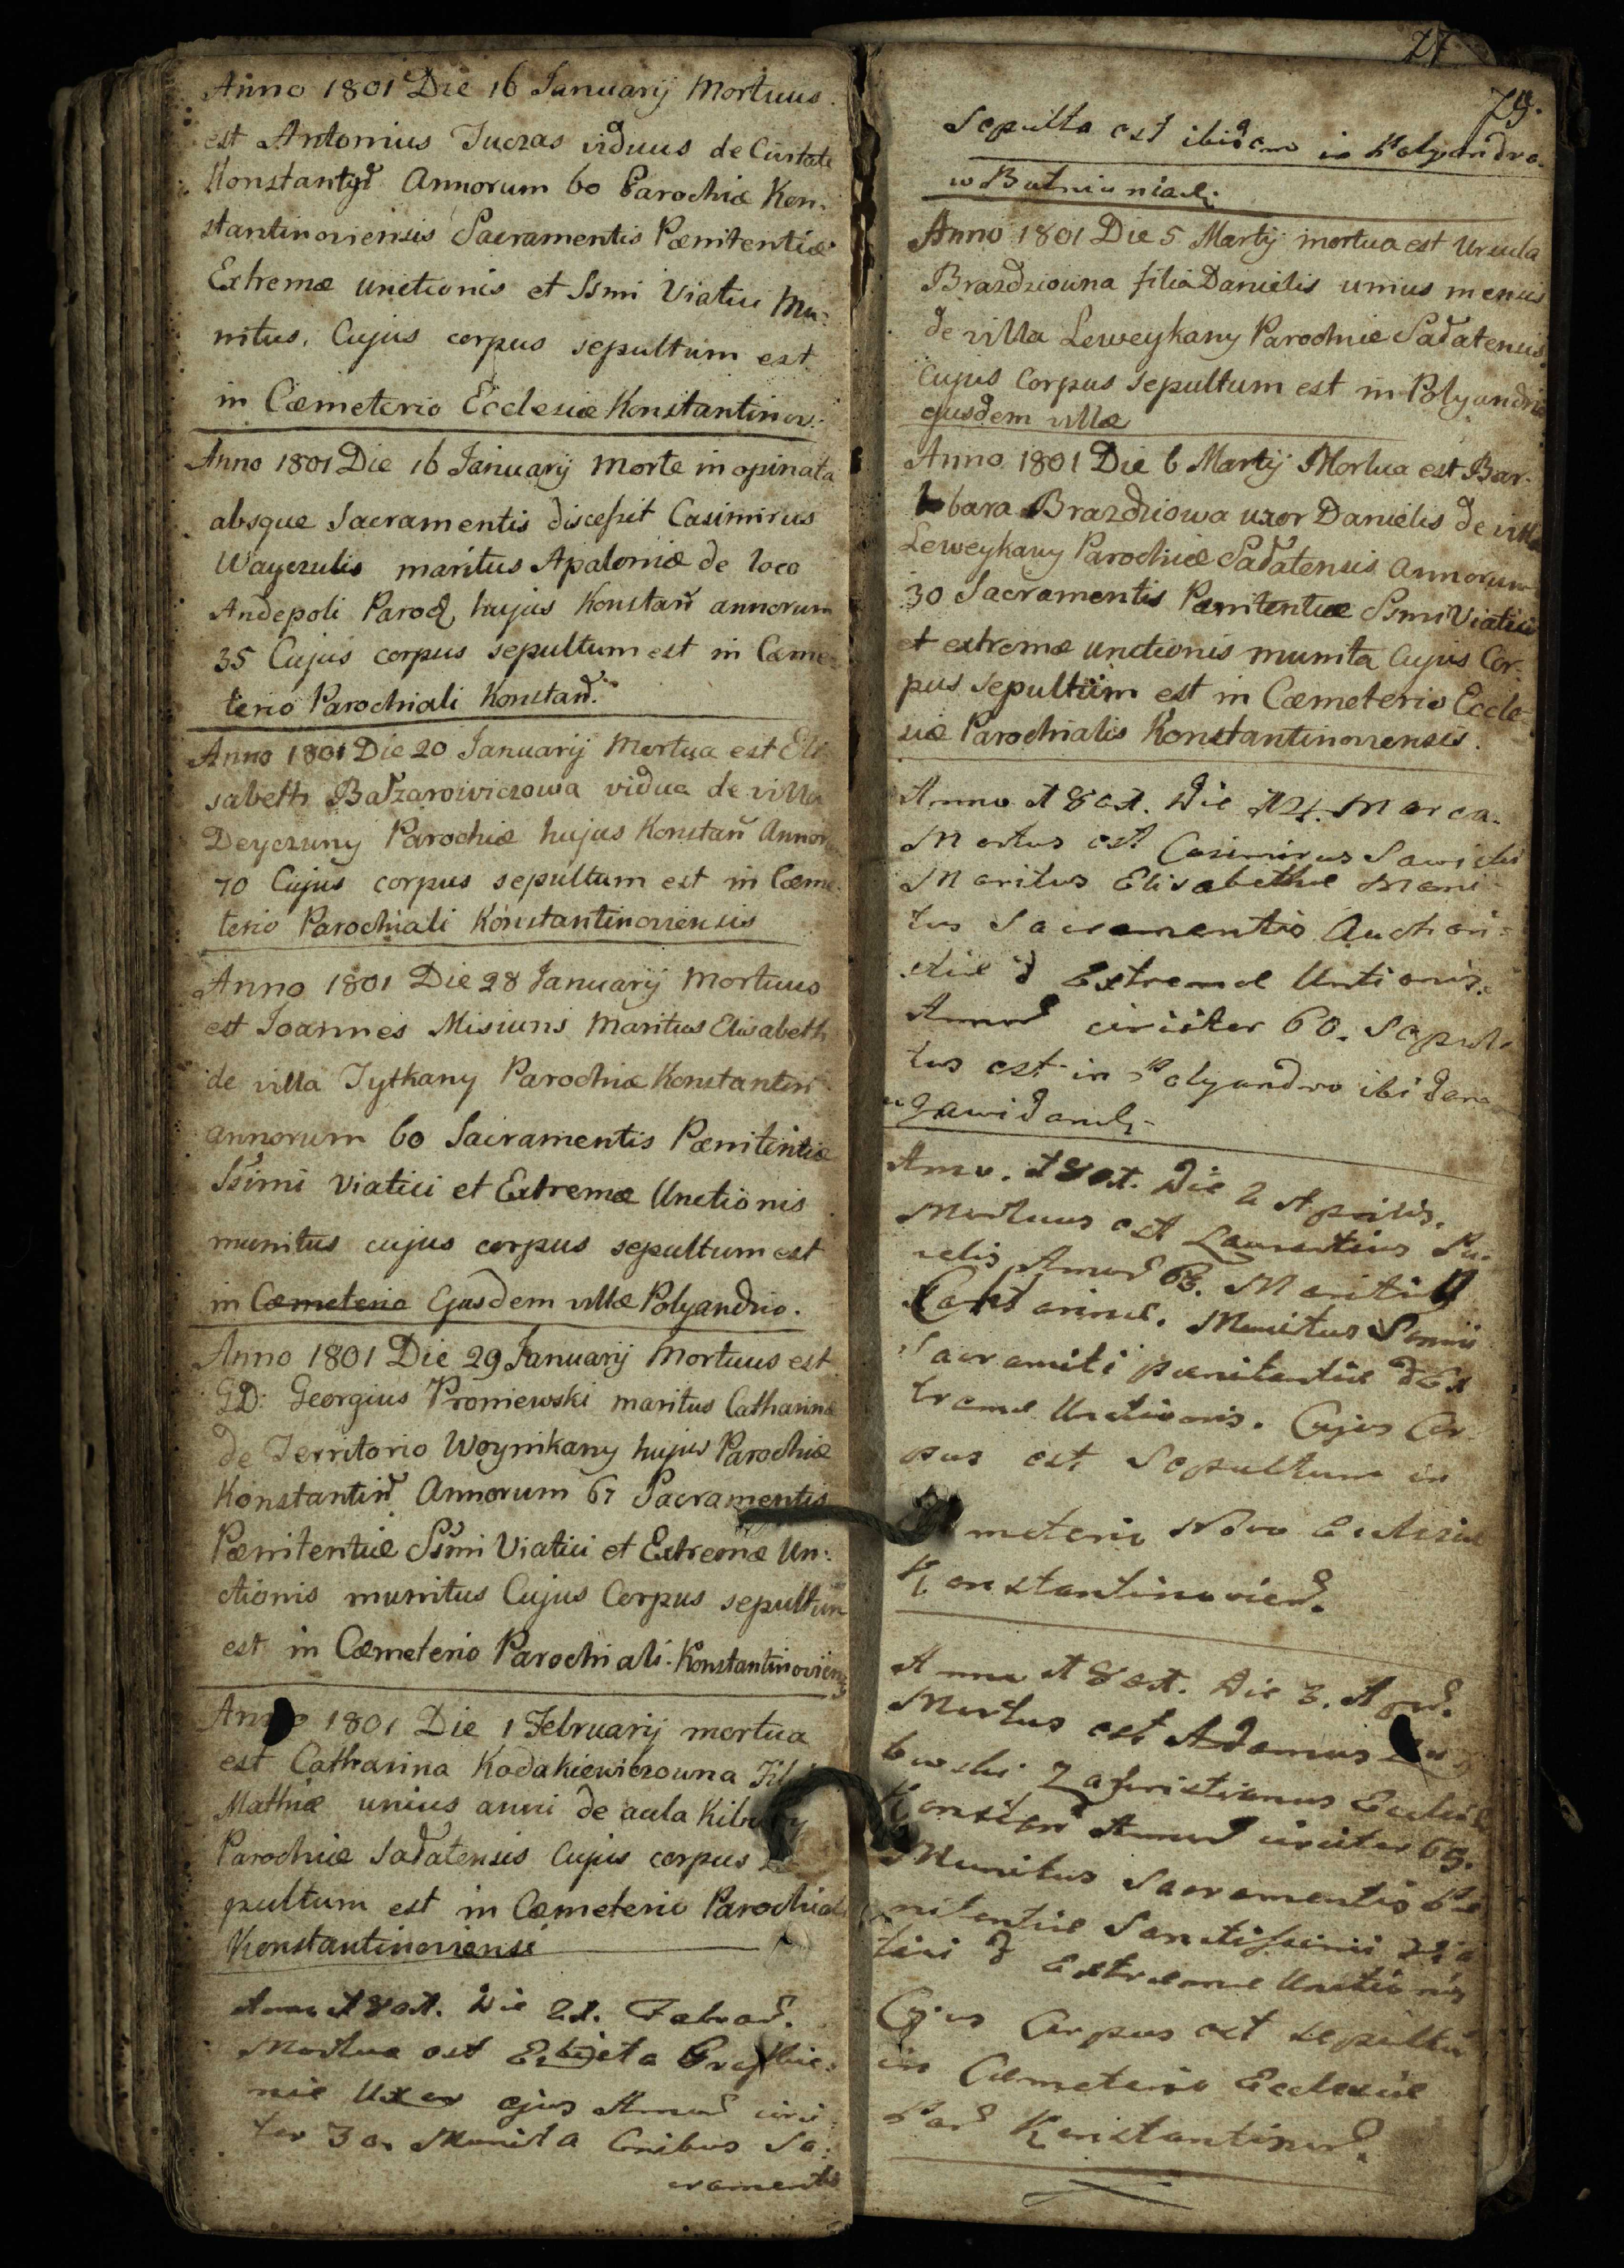 Anno 1801 Die 16 Januarij Mortuus
est Antonius Juczas viduus de Civitate
Konstantyd Annorum 60 Parochiæ Kon:
stantinoviensis Sacramentis Pænitentiæ
Extremæ unctionis et Ssmi Viatici Mu:
nitus, Cujus corpus sepultum est
in Cæmeterio Ecclesiæ Konstantinov:
Anno 1801 Die 16 Januarij morte inopinata
absque Sacramentis discessit Casimirus
Wayczulis maritus Apaloniæ de loco
Andepoli Paroch hujus Konstan annorum
35 Cujus corpus sepultum est in Cæme:
terio Parochiali Konstan:
Anno 1801 Die 20 Januarij Mortua est Eli
sabeth Balzarowiczowa vidua de villa
Deyczuny Parochiæ hujus Konstan Annor
70 Cujus corpus sepultum est in Cæme:
terio Parochiali Konstantinoviensis
Anno 1801 Die 28 Januarij Mortuus
est Joannes Misiuns Maritus Elisabeth
de villa Jytkany Parochiæ Konstantin
annorum 60 Sacramentis Pænitentiæ
Ssimi Viatici et Extremæ Unctionis
munitus cujus corpus sepultum est
in Cæmeterio Ejusdem villæ Polyandrio.
Anno 1801 Die 29 Januarij Mortuus est
GD: Georgius Proniewski maritus Catharinæ
de Territorio Woynikany hujus Parochiæ
Konstantin Annorum 67 Sacramentis
Pænitentiæ Ssmi Viatici et Extremæ Un:
ctionis munitus Cujus Corpus sepultum
est in Cæmeterio Parochiali Konstantinoviens
Anno 1801 Die 1 Februarij mortua
est Catharina Kodakiewiczowna Fil
Mathiæ unius anni de aula
Parochiæ Sadatensis Cujus corpus se
pultum est in Cæmeterio Parochiali
Konstantinoviensi
Anno 1801. Die 21. Febrad.
Mortua est Elbieta
Uxor ejus Annod circi
ter 30 Munita Onibus Sa:
cramentis
79.
Sepulta est ibidem in Polyandro
w Butniuniach.
Anno 1801 Die 5 Martij mortua est Ursula
Brazdziowna filia Danielis unius mensis
de villa Leweykany Parochiæ Sadatensis
Cujus Corpus sepultum est in Polyandrio
ejusdem villæ
Anno 1801 Die 6 Martij Mortua est Bar-
bara Brazdziowa uxor Danielis de villa
Leweykany Parochiæ Sadatensis annorum
30 Sacramentis Pænitentiæ Ssmi Viatici
et extremæ unctionis munita Cujus Cor:
pus sepultum est in Cæmeterio Eccle:
siæ Parochialis Konstantinoviensis.
Anno 1801. Die 12. Marca.
Mortus est Casimirus Sawicki
Maritus Elisabethæ Muni-
tus Sacramentis Auchari:
stiæ & Extremæ Untionis.
Annod circiter 60. Sepul:
tus est in Polyandro ibidem
w Gawidanch.
Anno. 1801. Die 2 Aprilis.
Mortuus est Laurentius
Annod 63. Maritus
Catarinæ. Munitus Ssmii
Sacramēti pænitentiæ & Ex
tremæ Unctionis. Cujus Cor
pus est Sepultum in
Cæmeterio Novo Eclesiæ
Konstantinoviend.
Anno 1801. Die 3. Aprd.
Mortus est Adamus
bowski Zachristianus Ecclesiæ
Konstan Annod circiter 65.
Munitus Sacramentis Pæ
nitentiæ Sanctissimii Via
tici & Extremæ Unctionis
Cujus Corpus est sepultū
in Cæmeterio Ecclesiæ
Pard Konstantinod.